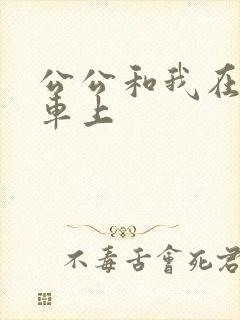 公公和我在
車上
不毒舌會死君